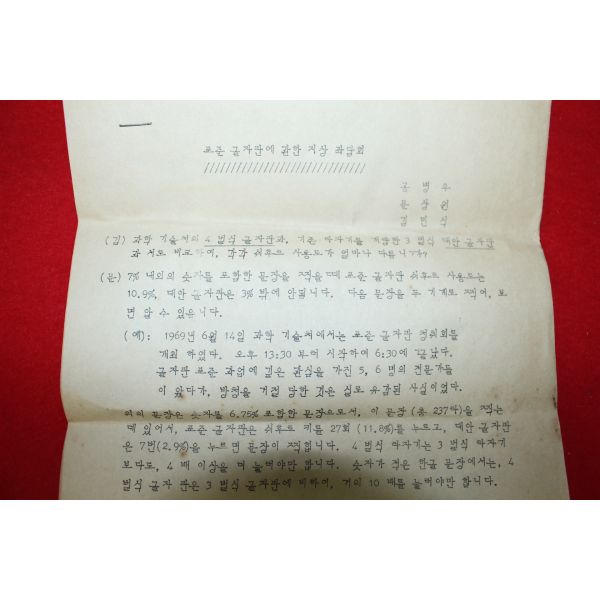 표준 글자판에 관한 지상 좌담회
////////////////////////////////
공 병 우
윤 상 원
김 민 식
(김) 과학 기술처의 4 벌식 글자판과, 기존 타자기를 개량한 3 벌식 대안 글자판
과 서로 비교하여, 각각 쉬후트 사용도가 얼마나 다릅니까?
(윤) 7% 내외의 숫자를 포함한 문장을 찍을 때 표준 글자판 쉬후트 사용도는
10.9%, 대안 글자판은 3% 밖에 안됩니다. 다음 문장을 두 기계로 찍어, 보
면 알 수 있읍니다.
(예): 1969년 6월 14일 과학 기술처에서는 표준 글자판 청취회를
개최 하였다. 오후 13:30 부터 시작하여 6:30에 끝났다.
글자판 표준 과업에 깊은 관심을 가진 5, 6 명의 전문가들
이 왔다가, 방청을 거절 당한 것은 실로 유감된 사실이었다.
위의 문장은 숫자를 6.75% 포함한 문장으로서, 이 문장 (총 237타)을 찍는
데 있어서, 표준 글자판은 쉬후트 키를 27회 (11.8%)를 누르고, 대안 글자판
은 7번(2.9%)을 누르면 문장이 찍힙니다. 4 벌식 타자기는 3 벌식 타자기
보다도, 4 배 이상을 더 눌러야만 합니다. 숫자가 적은 한글 문장에서는, 4
벌식 글자 판은 3 벌식 글자판에 비하여, 거의 10 배를 눌러야만 합니다.